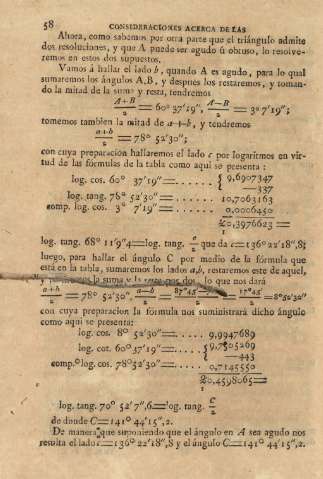 58 CONSIDERACIONES ACERCA DE LAS
Ahora, como sabemos por otra parte que el triángulo admite
dos resoluciones, y que A puede ser agudo ú obtuso, lo resolve-
remos en estos dos supuestos.
Vamos á hallar el lado b, quando A es agudo, para lo qual
sumaremos los ángulos A,B, y despues los restaremos, y toman-
do la mitad de la suma y resta, tendremos
A+B/2 = 60° 37'19", A-B/2 = 3° 7'19";
tomemos tambien la mitad de a+b, y tendremos
a+b/2 = 78° 52'30";
con cuya preparacion hallaremos el lado c por logaritmos en vir-
tud de las fórmulas de la tabla como aquí se presenta :
log. cos. 60° 37'19"=...... { 9,6907347
—337
log. tang. 78° 52'30"=...... 10,7063163
comp. log. cos. 3° 7'19"=...... 0,0006450
20,3976623=
log. tang. 68° 11'9"4=log. tang. c/2 que da c=136° 22'18",8;
luego, para hallar el ángulo C por medio de la fórmula que
está en la tabla, sumaremos los lados a,b, restaremos este de aquel,
y la suma y la dos, lo que nos dará
a+b/2 = 78° 52'30", a-b/2 = 17°45'/2 = 8°52'32"
con cuya preparacion la fórmula nos suministrará dicho ángulo
como aquí se presenta:
log. cos. 8° 52'30"=..... 9,9947689
log. cot. 60° 37'19"=..... { 9,7505269
—443
comp.° log. cos. 78°52'30"=... 0,7145550
20,4598065=
log. tang. 70° 52' 7",6=log. tang. c/2
de donde C=141° 44'15",2.
De manera que suponiendo que el ángulo en A sea agudo nos
resulta el lado c=136° 22'18",8 y el ángulo C=141° 44'15",2.